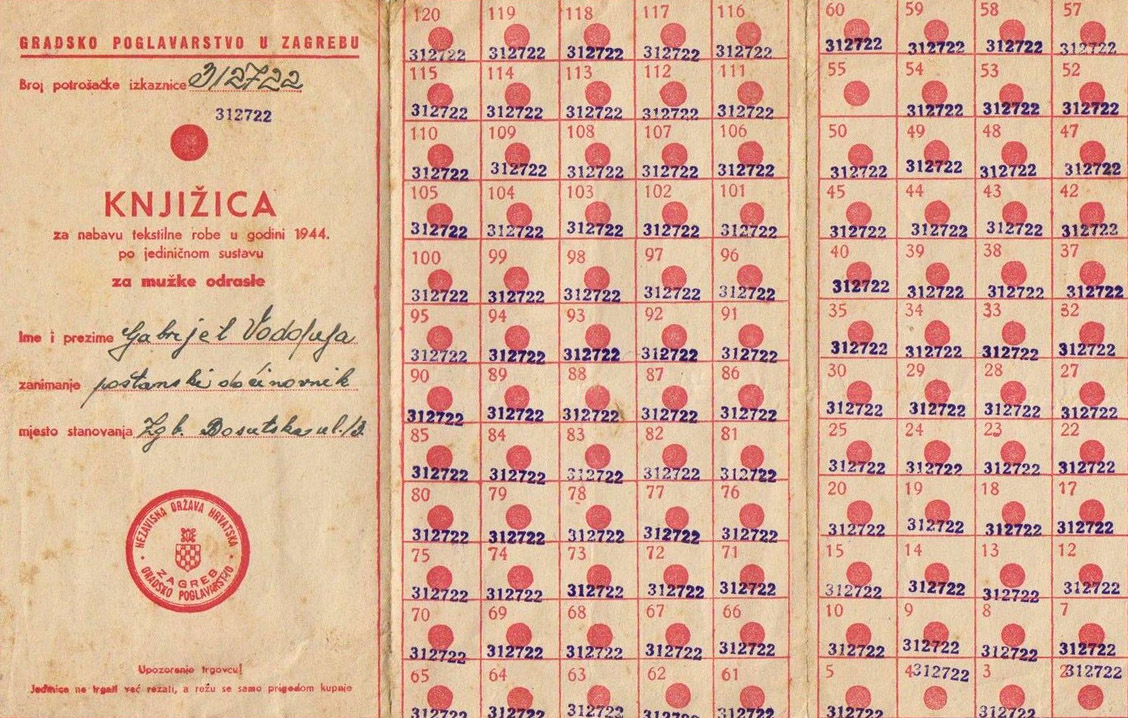 GRADSKO POGLAVARSTVO U ZAGREBU
Broj potrošačke izkaznice 312722
312722
KNJIŽICA
za nabavu tekstilne robe u godini 1944.
po jediničnom sustavu
za mužke odrasle
Ime i prezime Gabrijel
zanimanje poštanski dočinovnik
mjesto stanovanja Zgb. Bosutska ul.
NEZAVISNA DRŽAVA HRVATSKA
ZAGREB
GRADSKO POGLAVARSTVO
Upozorenje trgovcu!
Jedinice ne trgati već rezati, a režu se samo prigodom kupnje
120 119 118 117 116
312722 312722 312722 312722 312722
115 114 113 112 111
312722 312722 312722 312722 312722
110 109 108 107 106
312722 312722 312722 312722 312722
105 104 103 102 101
312722 312722 312722 312722 312722
100 99 98 97 96
312722 312722 312722 312722 312722
95 94 93 92 91
312722 312722 312722 312722 312722
90 89 88 87 86
312722 312722 312722 312722 312722
85 84 83 82 81
312722 312722 312722 312722 312722
80 79 78 77 76
312722 312722 312722 312722 312722
75 74 73 72 71
312722 312722 312722 312722 312722
70 69 68 67 66
312722 312722 312722 312722 312722
65 64 63 62 61
312722 312722 312722 312722 312722
60 59 58 57
312722 312722 312722 312722
55 54 53 52
312722 312722 312722
50 49 48 47
312722 312722 312722 312722
45 44 43 42
312722 312722 312722 312722
40 39 38 37
312722 312722 312722 312722
35 34 33 32
312722 312722 312722 312722
30 29 28 27
312722 312722 312722 312722
25 24 23 22
312722 312722 312722 312722
20 19 18 17
312722 312722 312722 312722
15 14 13 12
312722 312722 312722 312722
10 9 8 7
312722 312722 312722 312722
5 4 312722 3 2 312722
312722 312722